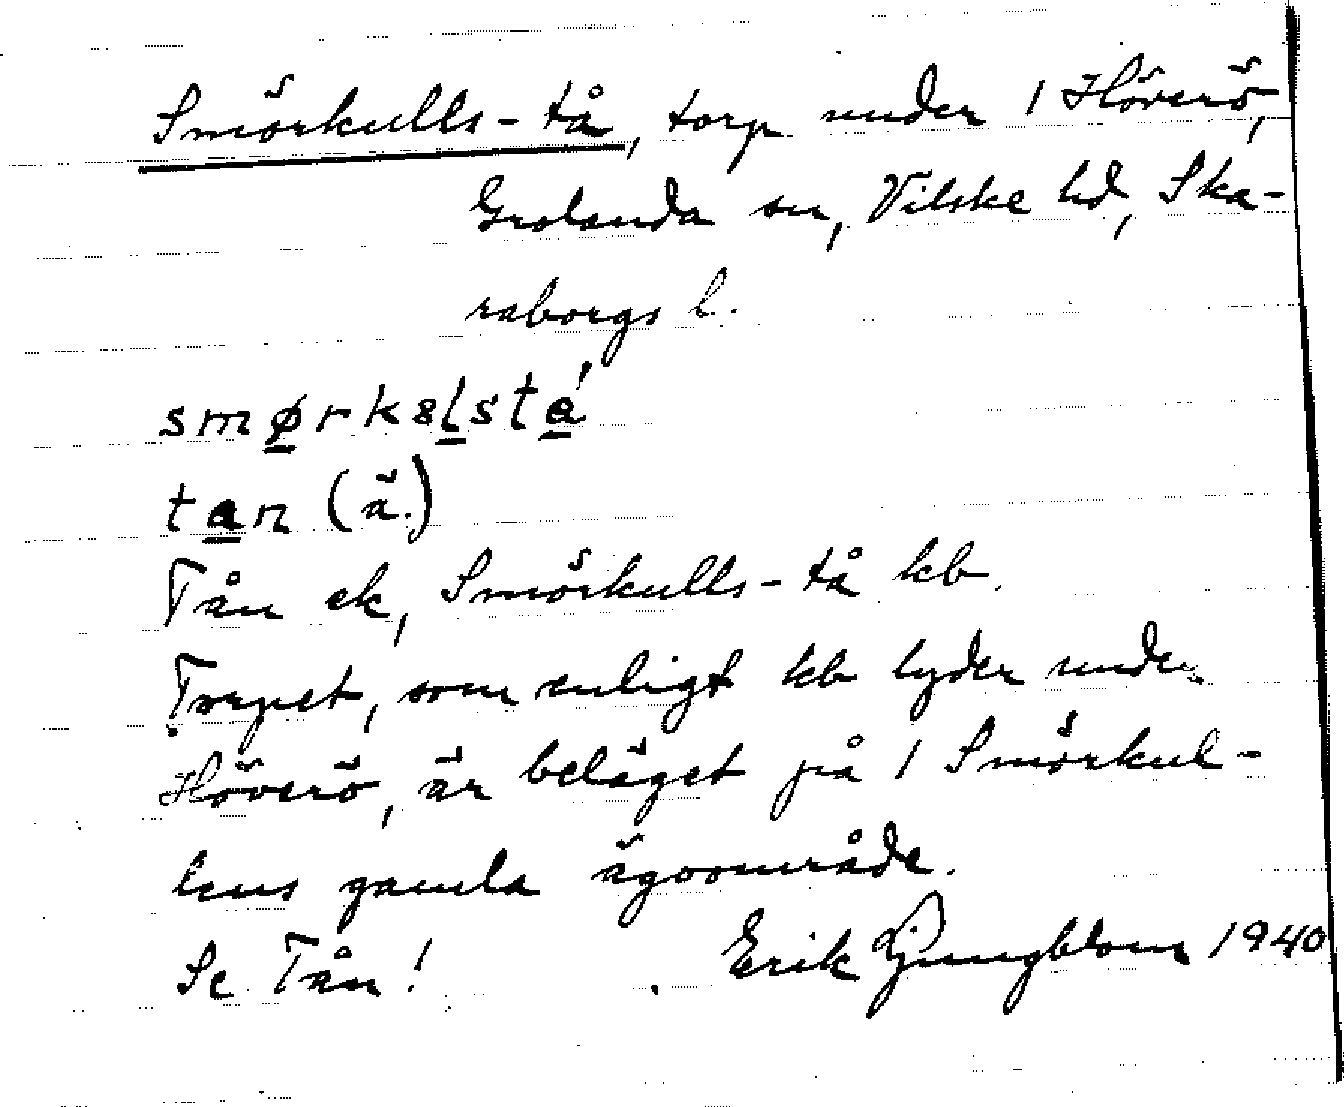 Smörkulls-tå, torp under 1 Höverö,
Grolanda sn, Vilske hd, Ska-
raborgs l.
smørkəlstá
tan (ä.)
Tån ek, Smörkulls-tå kb.
Torpet, som enligt kb lyder under
Höverö, är beläget på 1 Smörkul-
lens gamla ägoområde.
Se Tån!
Erik Ljungblom 1940